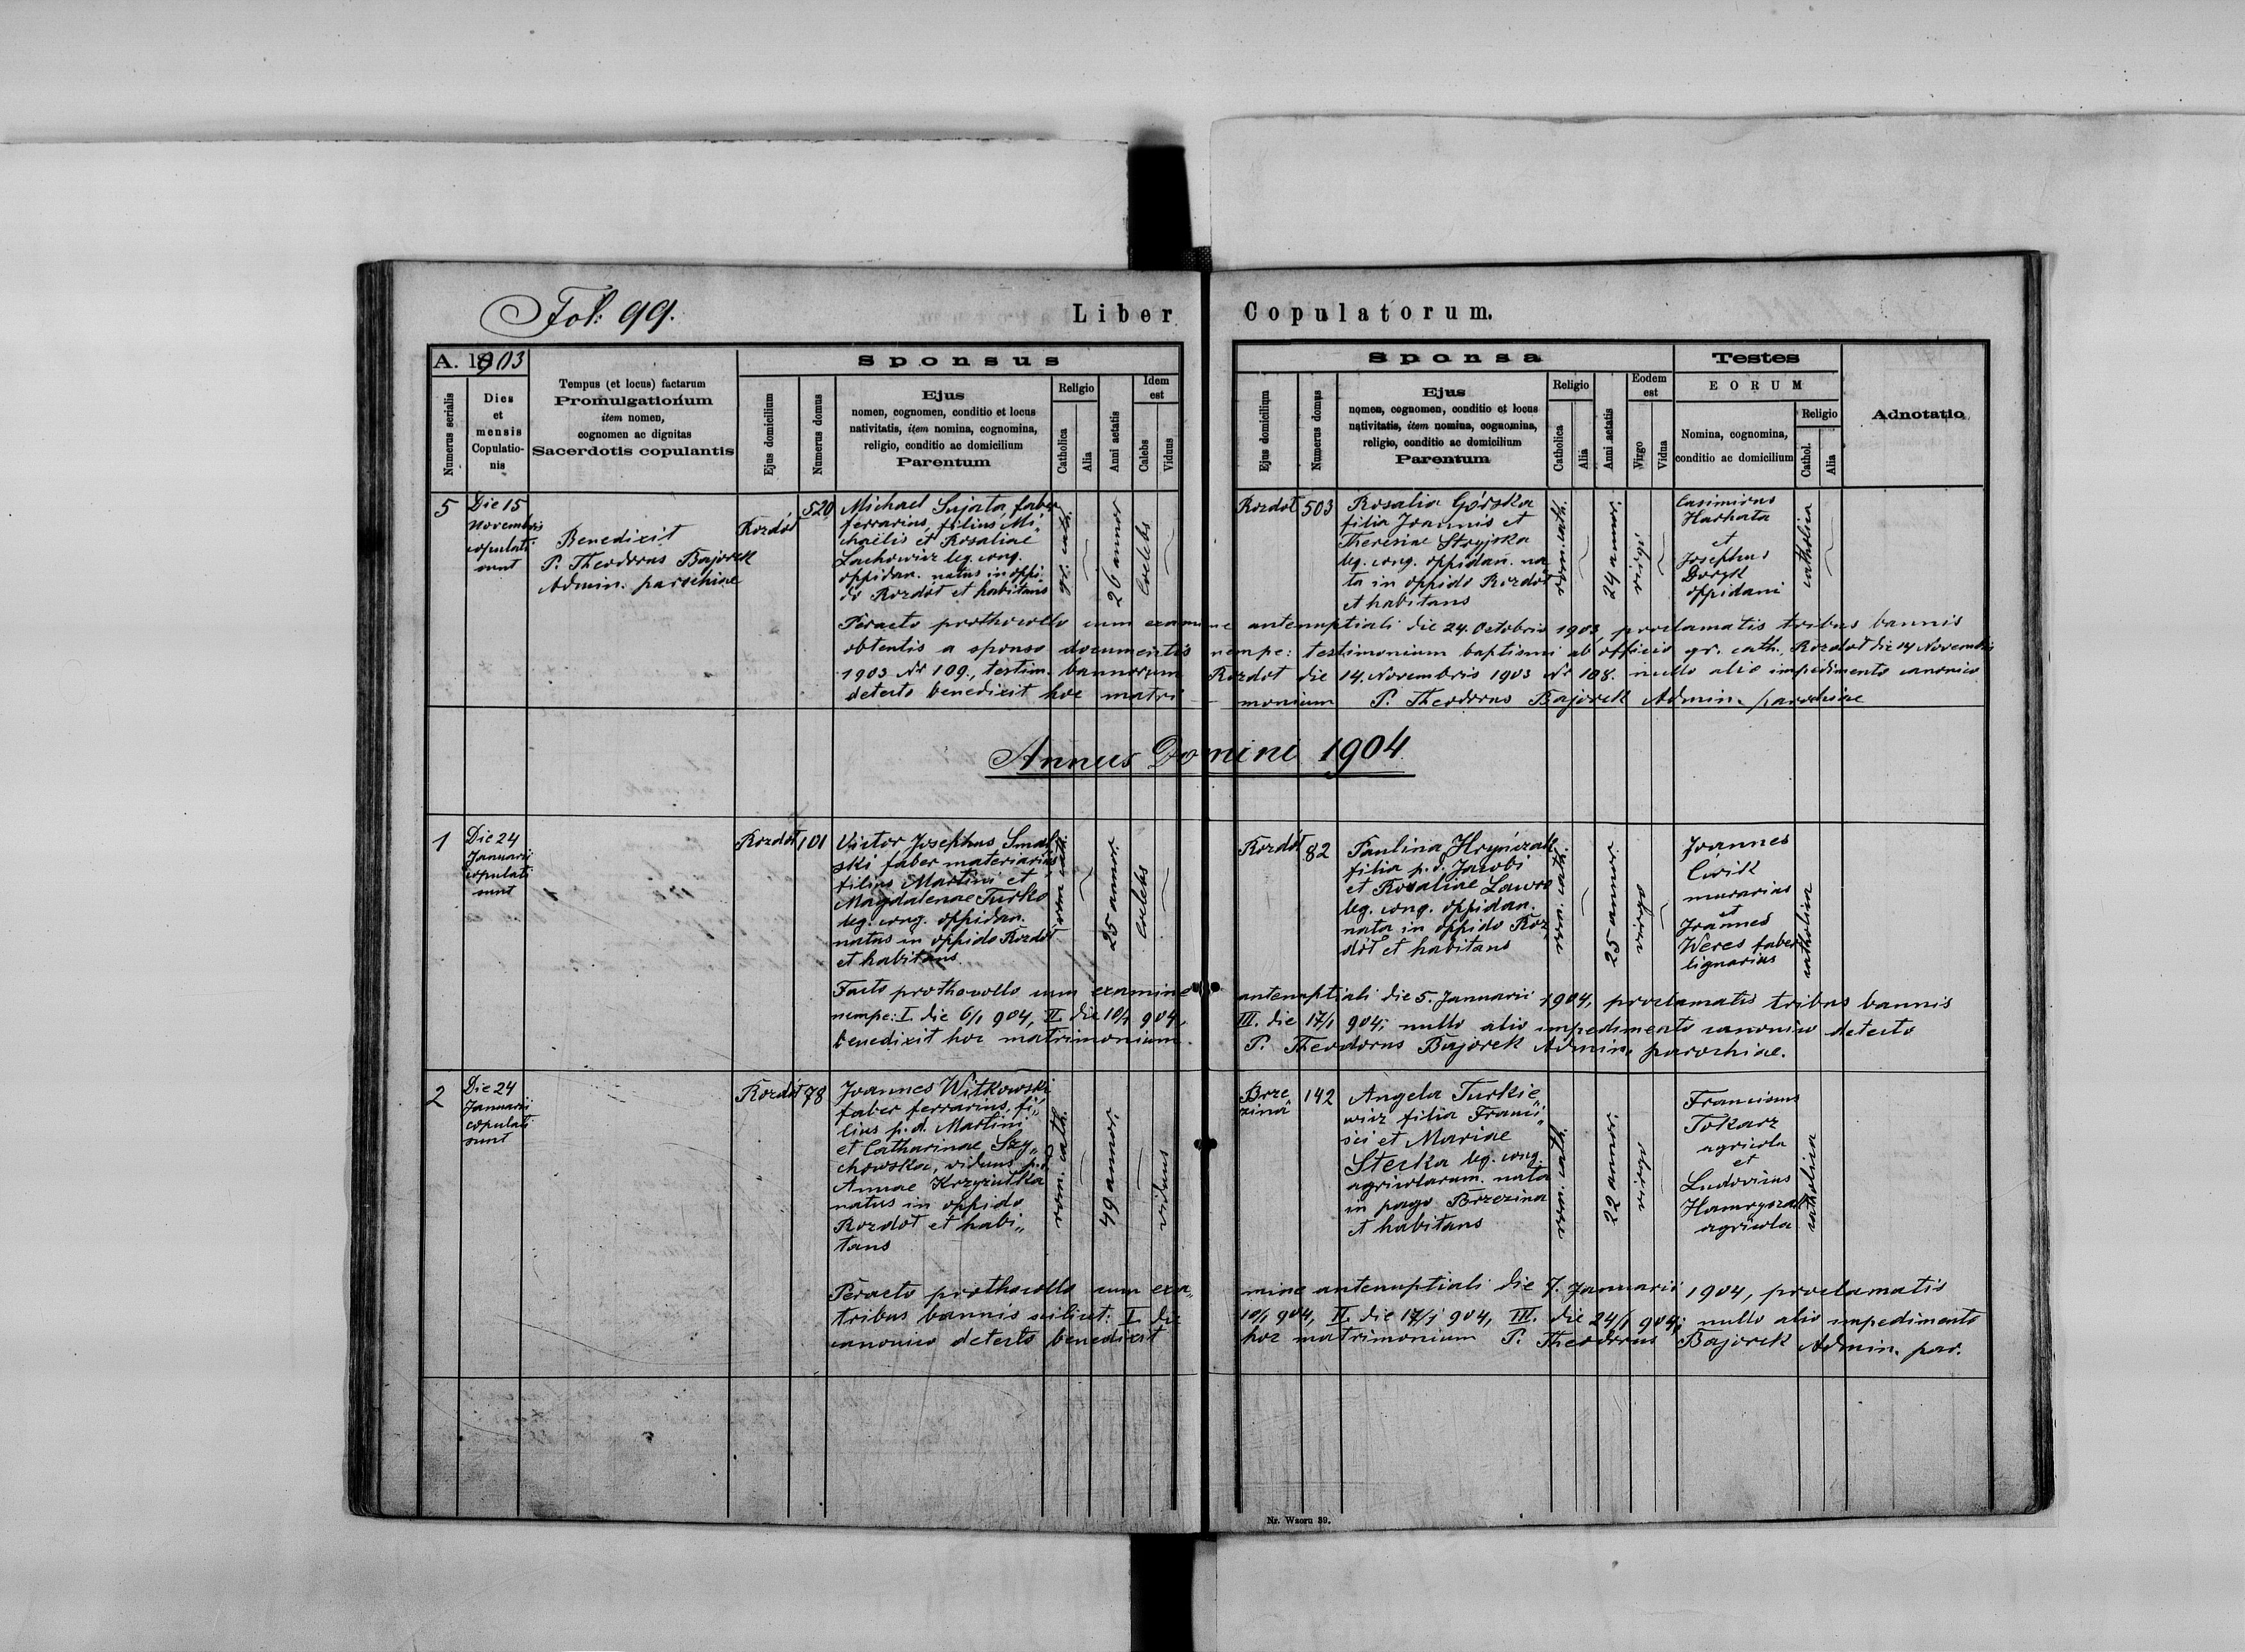 Fol: 99.
Liber Copulatorum.
A. 1903
Numerus serialis
Dies
et
mensis
Copulatio-
nis
Tempus (et locus) factarum
Promulgationum
item nomen,
cognomen ac dignitas
Sacerdotis copulantis
Sponsus
Ejus domicilium
Numerus domus
Ejus
nomen, cognomen, conditio et locus
nativitatis, item nomina, cognomina,
religio, conditio ac domicilium
Parentum
Religio
Catholica
Alia
Anni aetatis
Idem
est
Calebs
Viduus
Sponsa
Ejus domicilium
Numerus domus
Ejus
nomen, cognomen, conditio et locus
nativitatis, item nomina, cognomina,
religio, conditio ac domicilium
Parentum
Religio
Catholica
Alia
Anni aetatis
Eodem
est
Virgo
Vidua
Testes
EORUM
Nomina, cognomina,
conditio ac domicilium
Religio
Cathol.
Alia
Adnotatio
5
Die 15
Novembris
copulati
sunt
Benedixit
P. Theodorus Bajorek
Admin. parochiae
Rozdół
520
Michael Sujata, faber
ferrarius, filius Mi-
chaëlis et Rosaliae
Lachowicz leg. cong.
oppidan. natus in oppi-
do Rozdół et habitans
gr. cath.
26 annor
coelebs
Rozdół
503
Rosalia Górska
filia Joannis et
Theresiae Stryjska
leg. cong. oppidan. na
ta in oppido Rozdół
et habitans
rom. cath.
24 annor.
virgo
Casimirus
Harhata
et
Josephus
oppidani
catholica
Peracto prothocollo cum examine antenuptiali die 24. Octobris 1903, proclamatis tribus bannis
obtentis a sponso documentis nempe: testimonium baptismi ab officio gr. cath. Rozdół die 14 Novembris
1903 Nr 109., testim. bannorum Rozdół die 14. Novembris 1903 Nr 108. nullo alio impedimento canonico
detecto benedixit hoc matri monium P. Theodorus Bajorek Admin. parochiae
Annus Domini 1904
1
Die 24
Januarii
copulati
sunt
Rozdół
101
Victor Josephus Smal
ski faber materiarius
filius Martini et
Magdalenae Turko
leg. cong. oppidan.
natus in oppido Rozdół
et habitans
rom. cath.
25 annor.
coelebs
Rozdół
82
Paulina Hryńczak
filia p.d. Jacobi
et Rosaliae Lawro
leg. cong. oppidan.
nata in oppido Roz
dół et habitans
rom. cath.
25 annor.
virgo
Joannes
Ćwik
murarius
et
Joannes
Weres faber
lignarius
catholica
Facto prothocollo cum examine antenuptiali die 5. Januarii 1904, proclamatis tribus bannis
nempe: I. die 6/1 904, II. die 10/1 904, III. die 17/1 904; nullo alio impedimento canonico detecto
benedixit hoc matrimonium. P. Theodorus Bajorek Admin. parochiae.
2
Die 24
Januarii
copulati
sunt
Rozdół
78
Joannes Witkowski
faber ferrarius, fi„
lius p.d. Martini
et Catharinae Szy„
chowska, viduus p.d.
Annae Krzyzutka
natus in oppido
Rozdół et habi„
tans
rom. cath.
49 annor.
viduus
Brze„
zina
142
Angela Turkie„
wicz filia Franci„
sci et Mariae
Stecka leg. cong.
agricolarum. nata
in pago Brzezina
et habitans
rom. cath.
22 annor.
virgo
Franciscus
Tokarz
agricola
et
Ludovicus
agricola
catholica
Peracto prothocollo cum exa„ mine antenuptiali die 7. Januarii 1904, proclamatis
tribus bannis scilicet: I. die 10/1 904, II. die 17/1 904, III. die 24/1 904; nullo alio impedimento
canonico detecto benedixit hoc matrimonium P. Theodorus Bajorek Admin. par.
Nr. Wzoru 39.